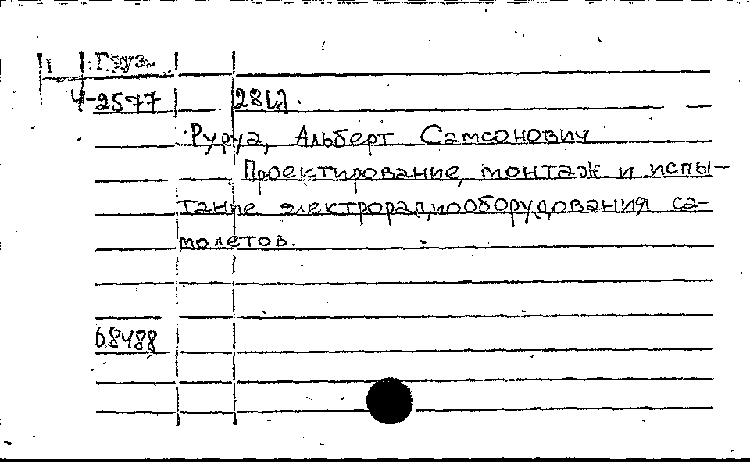 1 Груз.
Ч-2577 28(2).
Руруа, Альберт Самсонович
Проектирование, монтаж и испы-
тание электрорадиооборудования са-
молетов.
68488